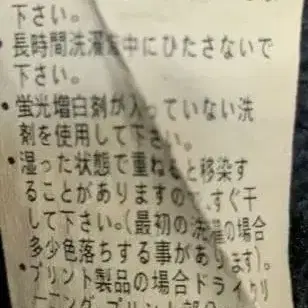 下さい。
・長時間洗濯液中にひたさないで
下さい。
・蛍光増白剤が入っていない洗
剤を使用して下さい。
・湿った状態で重ねると移染す
ることがありますので、すぐ干
して下さい。(最初の洗濯の場合
多少色落ちする事があります)。
・プリント製品の場合ドライクリ
ーニング、プリント部分